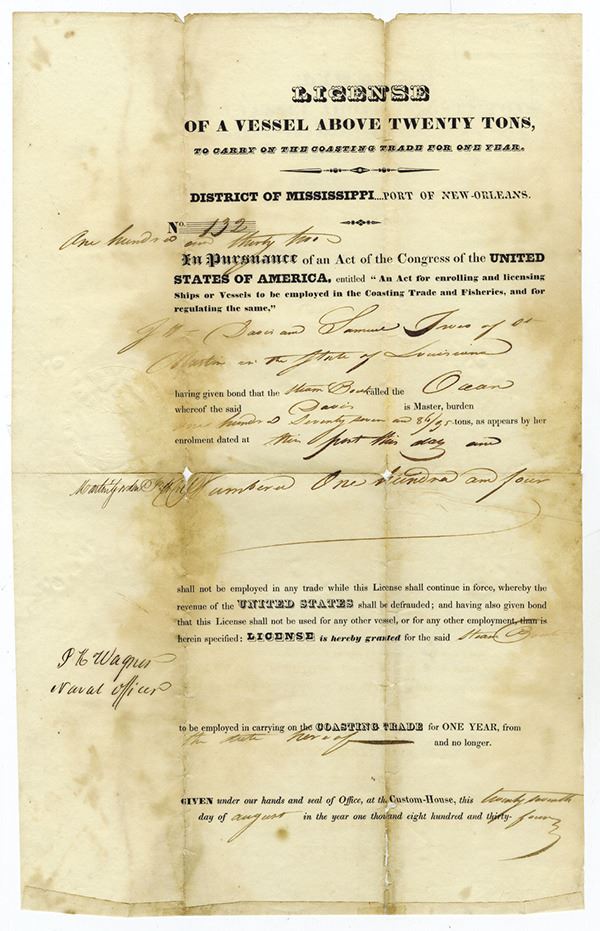 LICENSE
OF A VESSEL ABOVE TWENTY TONS,
TO CARRY ON THE COASTING TRADE FOR ONE YEAR.
DISTRICT OF MISSISSIPPI....PORT OF NEW-ORLEANS.
No. 132
One hundred and thirty two
In Pursuance of an Act of the Congress of the UNITED
STATES OF AMERICA, entitled "An Act for enrolling and licensing
Ships or Vessels to be employed in the Coasting Trade and Fisheries, and for
regulating the same,"
Davis and Samuel Ives of St
Martin in the State of Louisiana
having given bond that the Steam Boat called the Ocean
whereof the said Davis is Master, burden
one hundred Seventy seven and 86/95 tons, as appears by her
enrolment dated at this port this day and
Numbered One hundred and four
shall not be employed in any trade while this License shall continue in force, whereby the
revenue of the UNITED STATES shall be defrauded; and having also given bond
that this License shall not be used for any other vessel, or for any other employment, than is
herein specified: LICENSE is hereby granted for the said Steam Boat
P K Wagner
Naval Officer
to be employed in carrying on the COASTING TRADE for ONE YEAR, from
the date hereof and no longer.
GIVEN under our hands and seal of Office, at the Custom-House, this twenty seventh
day of august in the year one thousand eight hundred and thirty-four